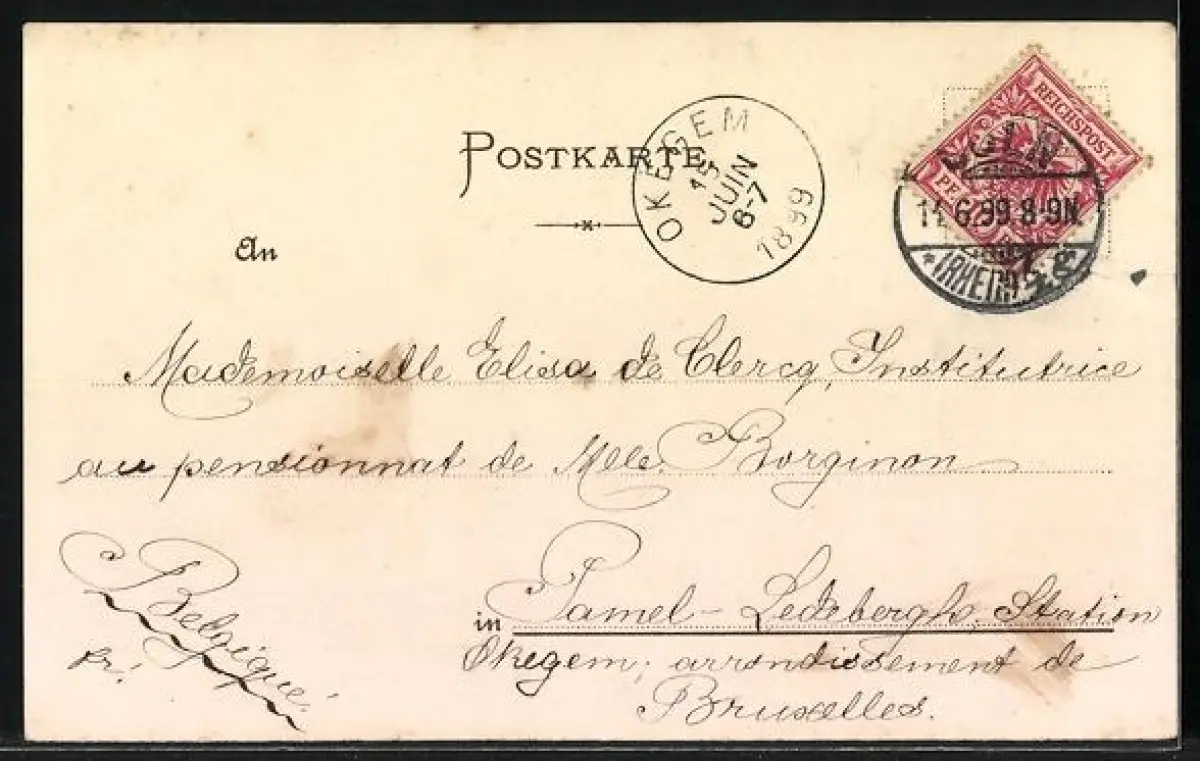 POSTKARTE
OKEGEM
15
JUIN
6-7
1899
REICHSPOST
CÖLN
6.99.8-9N.
* (RHEIN)
An
Mademoiselle Elisa de Clercq, Institutrice
au pensionnat de Melle Borginon
in Pamel-Ledeberghe, Station
Okegem; arrondissement de
Bruxelles.
Belgique!